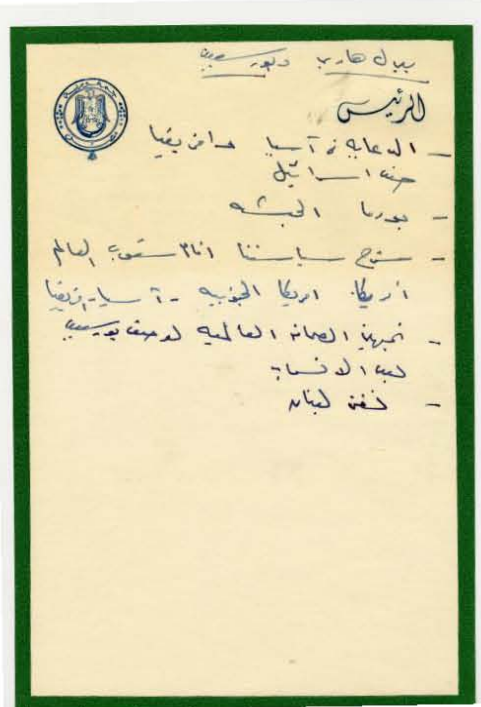 بيبال هارب وبورسعيد
الرئيس
- الدعاية فى آسيا وافريقيا
ضد اسرائيل
- بورما الحبشه
- شرح سياستنا امام شعوب العالم
امريكا امريكا الجنوبيه - آسيا - افريقيا
- تجهيز الصحافه العالميه لوصف بورسعيد
بعد الانسحاب
- لبنان